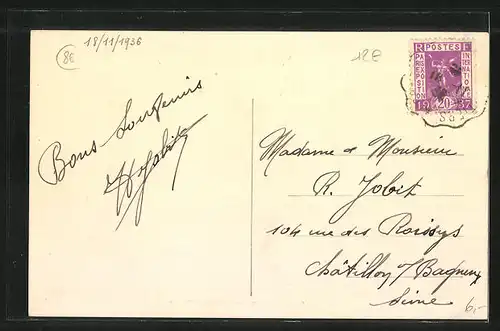 18/11/1936
8E
12E
RF POSTES
PARIS EXPOSITION
INTERNATION
1937
20
Bons Souvenirs
Madame & Monsieur
R. Jobit
104 rue des Roissys
Châtillon s/ Bagneux
Seine
6,-